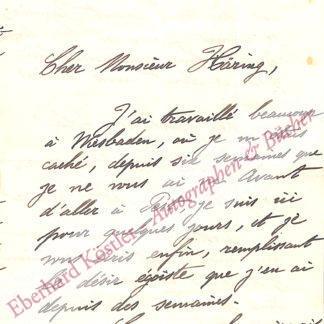 Cher Monsieur Häring,
J'ai travaillé beaucoup
à Wiesbaden, où je m'étais
caché, depuis six semaines que
je ne vous ai vu. Avant
d'aller à Paris je suis ici
pour quelques jours, et je
vous écris enfin, remplissant
le désir égoïste que j'en ai
depuis des semaines.
Eberhard Köstler Autographen & Bücher